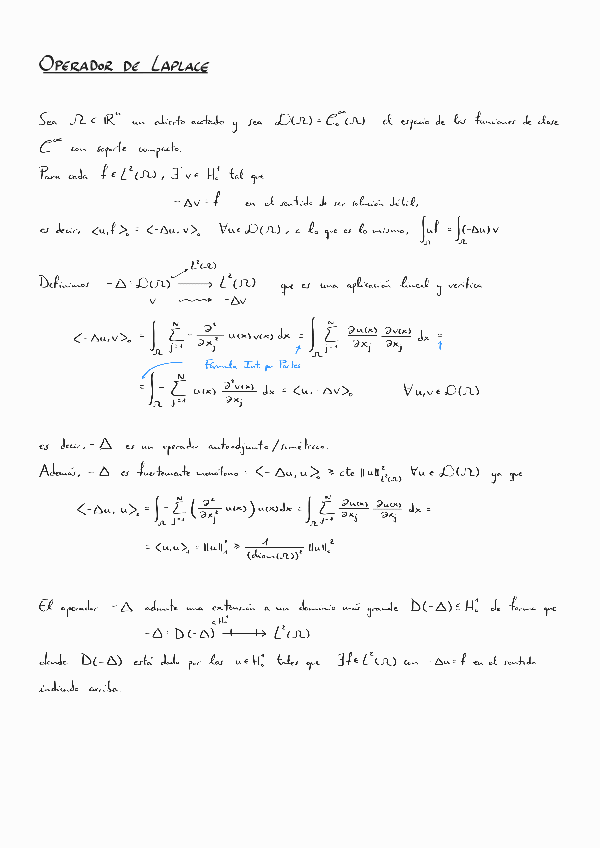 OPERADOR DE LAPLACE
Sea Ω ⊂ ℝⁿ un abierto acotado y sea 𝒟(Ω) = C₀^∞(Ω) el espacio de las funciones de clase
C^∞ con soporte compacto.
Para cada f ∈ L²(Ω), ∃¹ v ∈ H₀¹ tal que
-Δv = f en el sentido de ser solución débil,
es decir, <u,f>₀ = <-Δu, v>₀ ∀u ∈ 𝒟(Ω), o lo que es lo mismo, ∫_Ω uf = ∫_Ω (-Δu) v
L²(Ω)
Definimos -Δ : 𝒟(Ω) ⟶ L²(Ω) que es una aplicación lineal y verifica
v ⇝ -Δv
<-Δu, v>₀ = ∫_Ω ∑_{j=1}^N - ∂²/∂x_j² u(x) v(x) dx = ∫_Ω ∑_{j=1}^N ∂u(x)/∂x_j ∂v(x)/∂x_j dx =
Fórmula Int. por Partes
= ∫_Ω - ∑_{j=1}^N u(x) ∂²v(x)/∂x_j dx = <u, -Δv>₀ ∀u,v ∈ 𝒟(Ω)
es decir, -Δ es un operador autoadjunto/simétrico.
Además, -Δ es fuertemente monótono : <-Δu, u>₀ ≥ cte ||u||²_{L²(Ω)} ∀u ∈ 𝒟(Ω) ya que
<-Δu, u>₀ = ∫_Ω - ∑_{j=1}^N (∂²/∂x_j² u(x)) u(x) dx = ∫_Ω ∑_{j=1}^N ∂u(x)/∂x_j ∂u(x)/∂x_j dx =
= <u,u>₁ = ||u||₁² ≥ 1/(diam(Ω))² ||u||₀²
El operador -Δ admite una extensión a un dominio más grande D(-Δ) ⊆ H₀¹ de forma que
⊂ H₀¹
-Δ : D(-Δ) ⟶ L²(Ω)
donde D(-Δ) está dado por los u ∈ H₀¹ tales que ∃f ∈ L²(Ω) con -Δu = f en el sentido
indicado arriba.